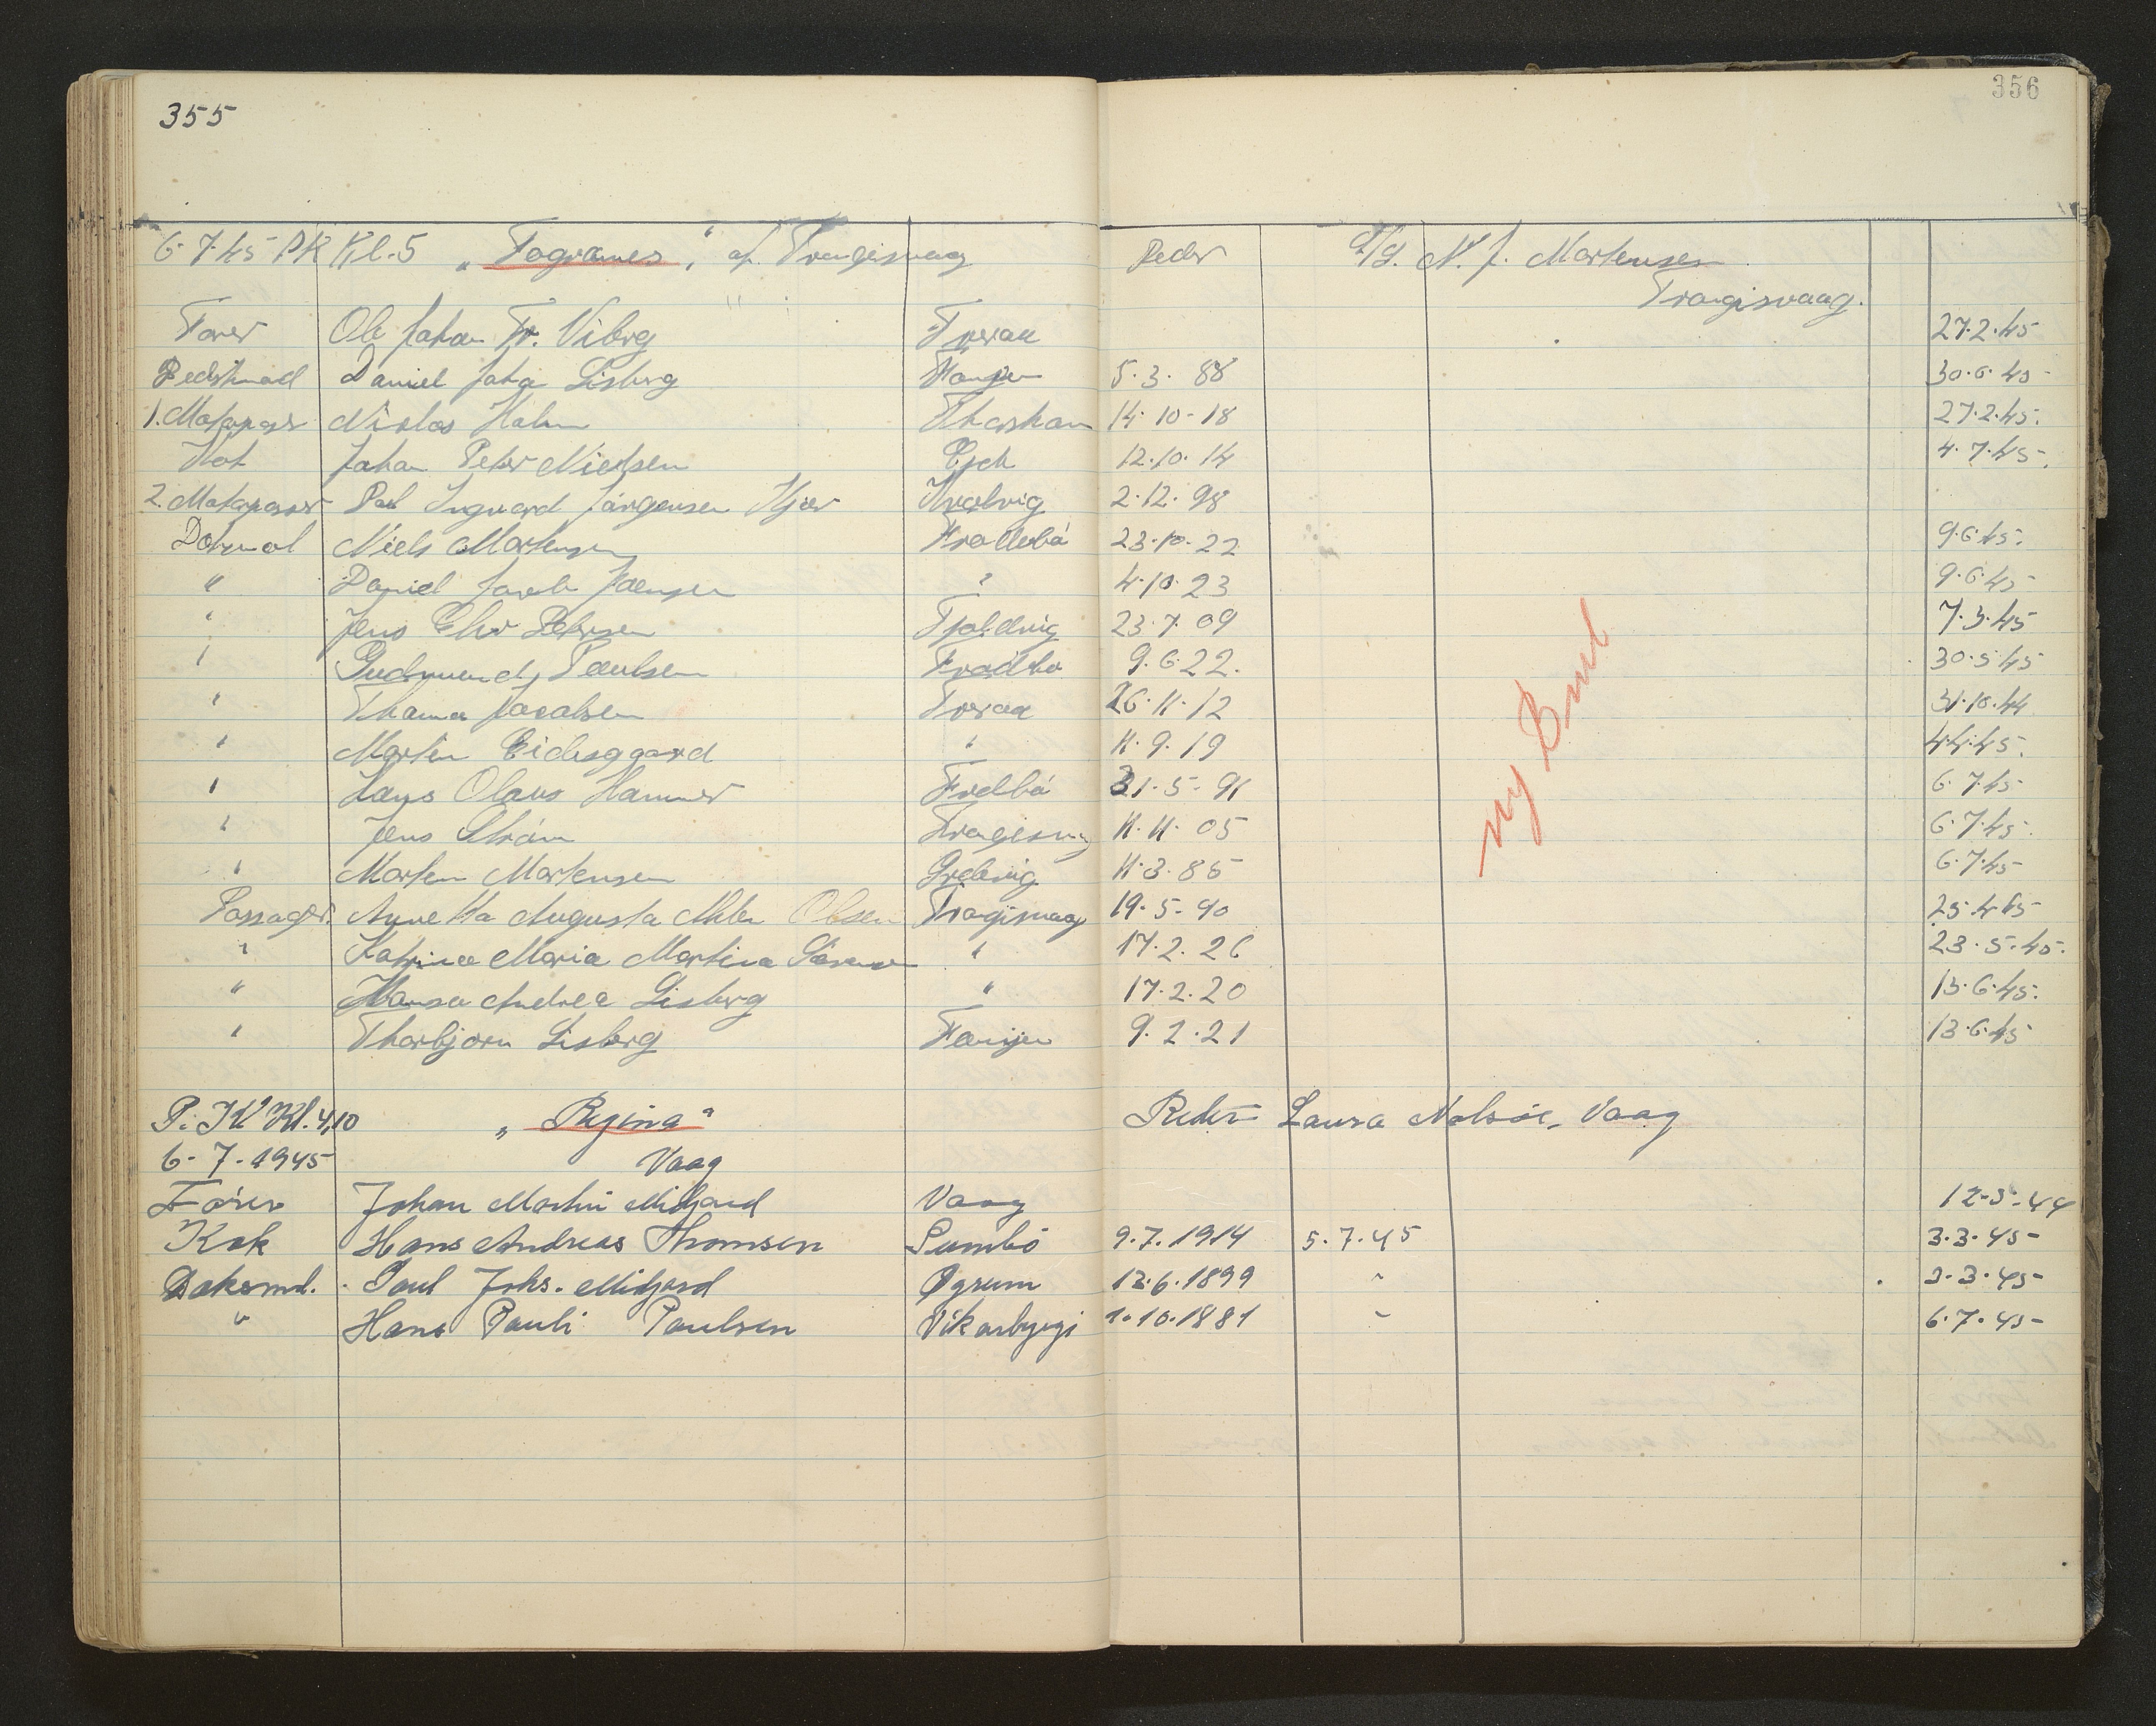 355
356
6.7.45 PK Kl. 5 „Fagranes“, af Trangisvaag Reder A/S. N. J. Mortensen
Trangisvaag.
Fører Ole Johan Fr. Viberg Tveraa 27.2.45
Bedstmad Daniel Lisberg Famjen 5.3.88 30.6.45
1. Motorpasser Niclas Holm Thorshavn 14-10-18 27.2.45.
Kok Johan Peter Nielsen 12.10.14 4.7.45.
2. Motorpasser Poul Ingvard Jørgensen Kjær Hvalvig 2.12.98
Niels Mortensen Frodebö 23.10.22 9.6.45.
" Daniel Jacob Joensen " 4.10.23 9.6.45
" Jens Petersen 23.7.09 7.3.45
" Gudmund Poulsen Frodebo 9.6.22. 30.5.45
" Thomas Jacobsen Tveraa 26.11.12 31.10.44
" Morten Eidesgaard " 11.9.19 4.4.45.
" Hans Olaus Hammer 6.7.45
" Jens Trangisvaag 11.11.05 6.7.45.
" Morten Mortensen 6.7.45
Passager. Augusta Olsen Trangisvaag 19.5.90
" Katrina Maria Martina " 17.2.26 23.5.45.
" Hansa Andrea Lisberg " 17.2.20 13.6.45.
" Thorbjørn Lisberg Famjen 9.2.21 13.6.45
ny Bml
P: K Kl. 4,10 „Regina“ Reder Laura Nolsöe, Vaag
6-7-1945 Vaag
Förer Johan Martin Midjord Vaag 12-3-44
Kok Hans Andreas Thomsen Sumbö 9.7.1914 5.7.45 3.3.45-
Daksmd. Poul Johs. Midjord Øgrum 13.6.1899 " 3-3-45-
" Hans Pauli Poulsen Vikarbyrgi 1.10.1881 " 6.7.45-